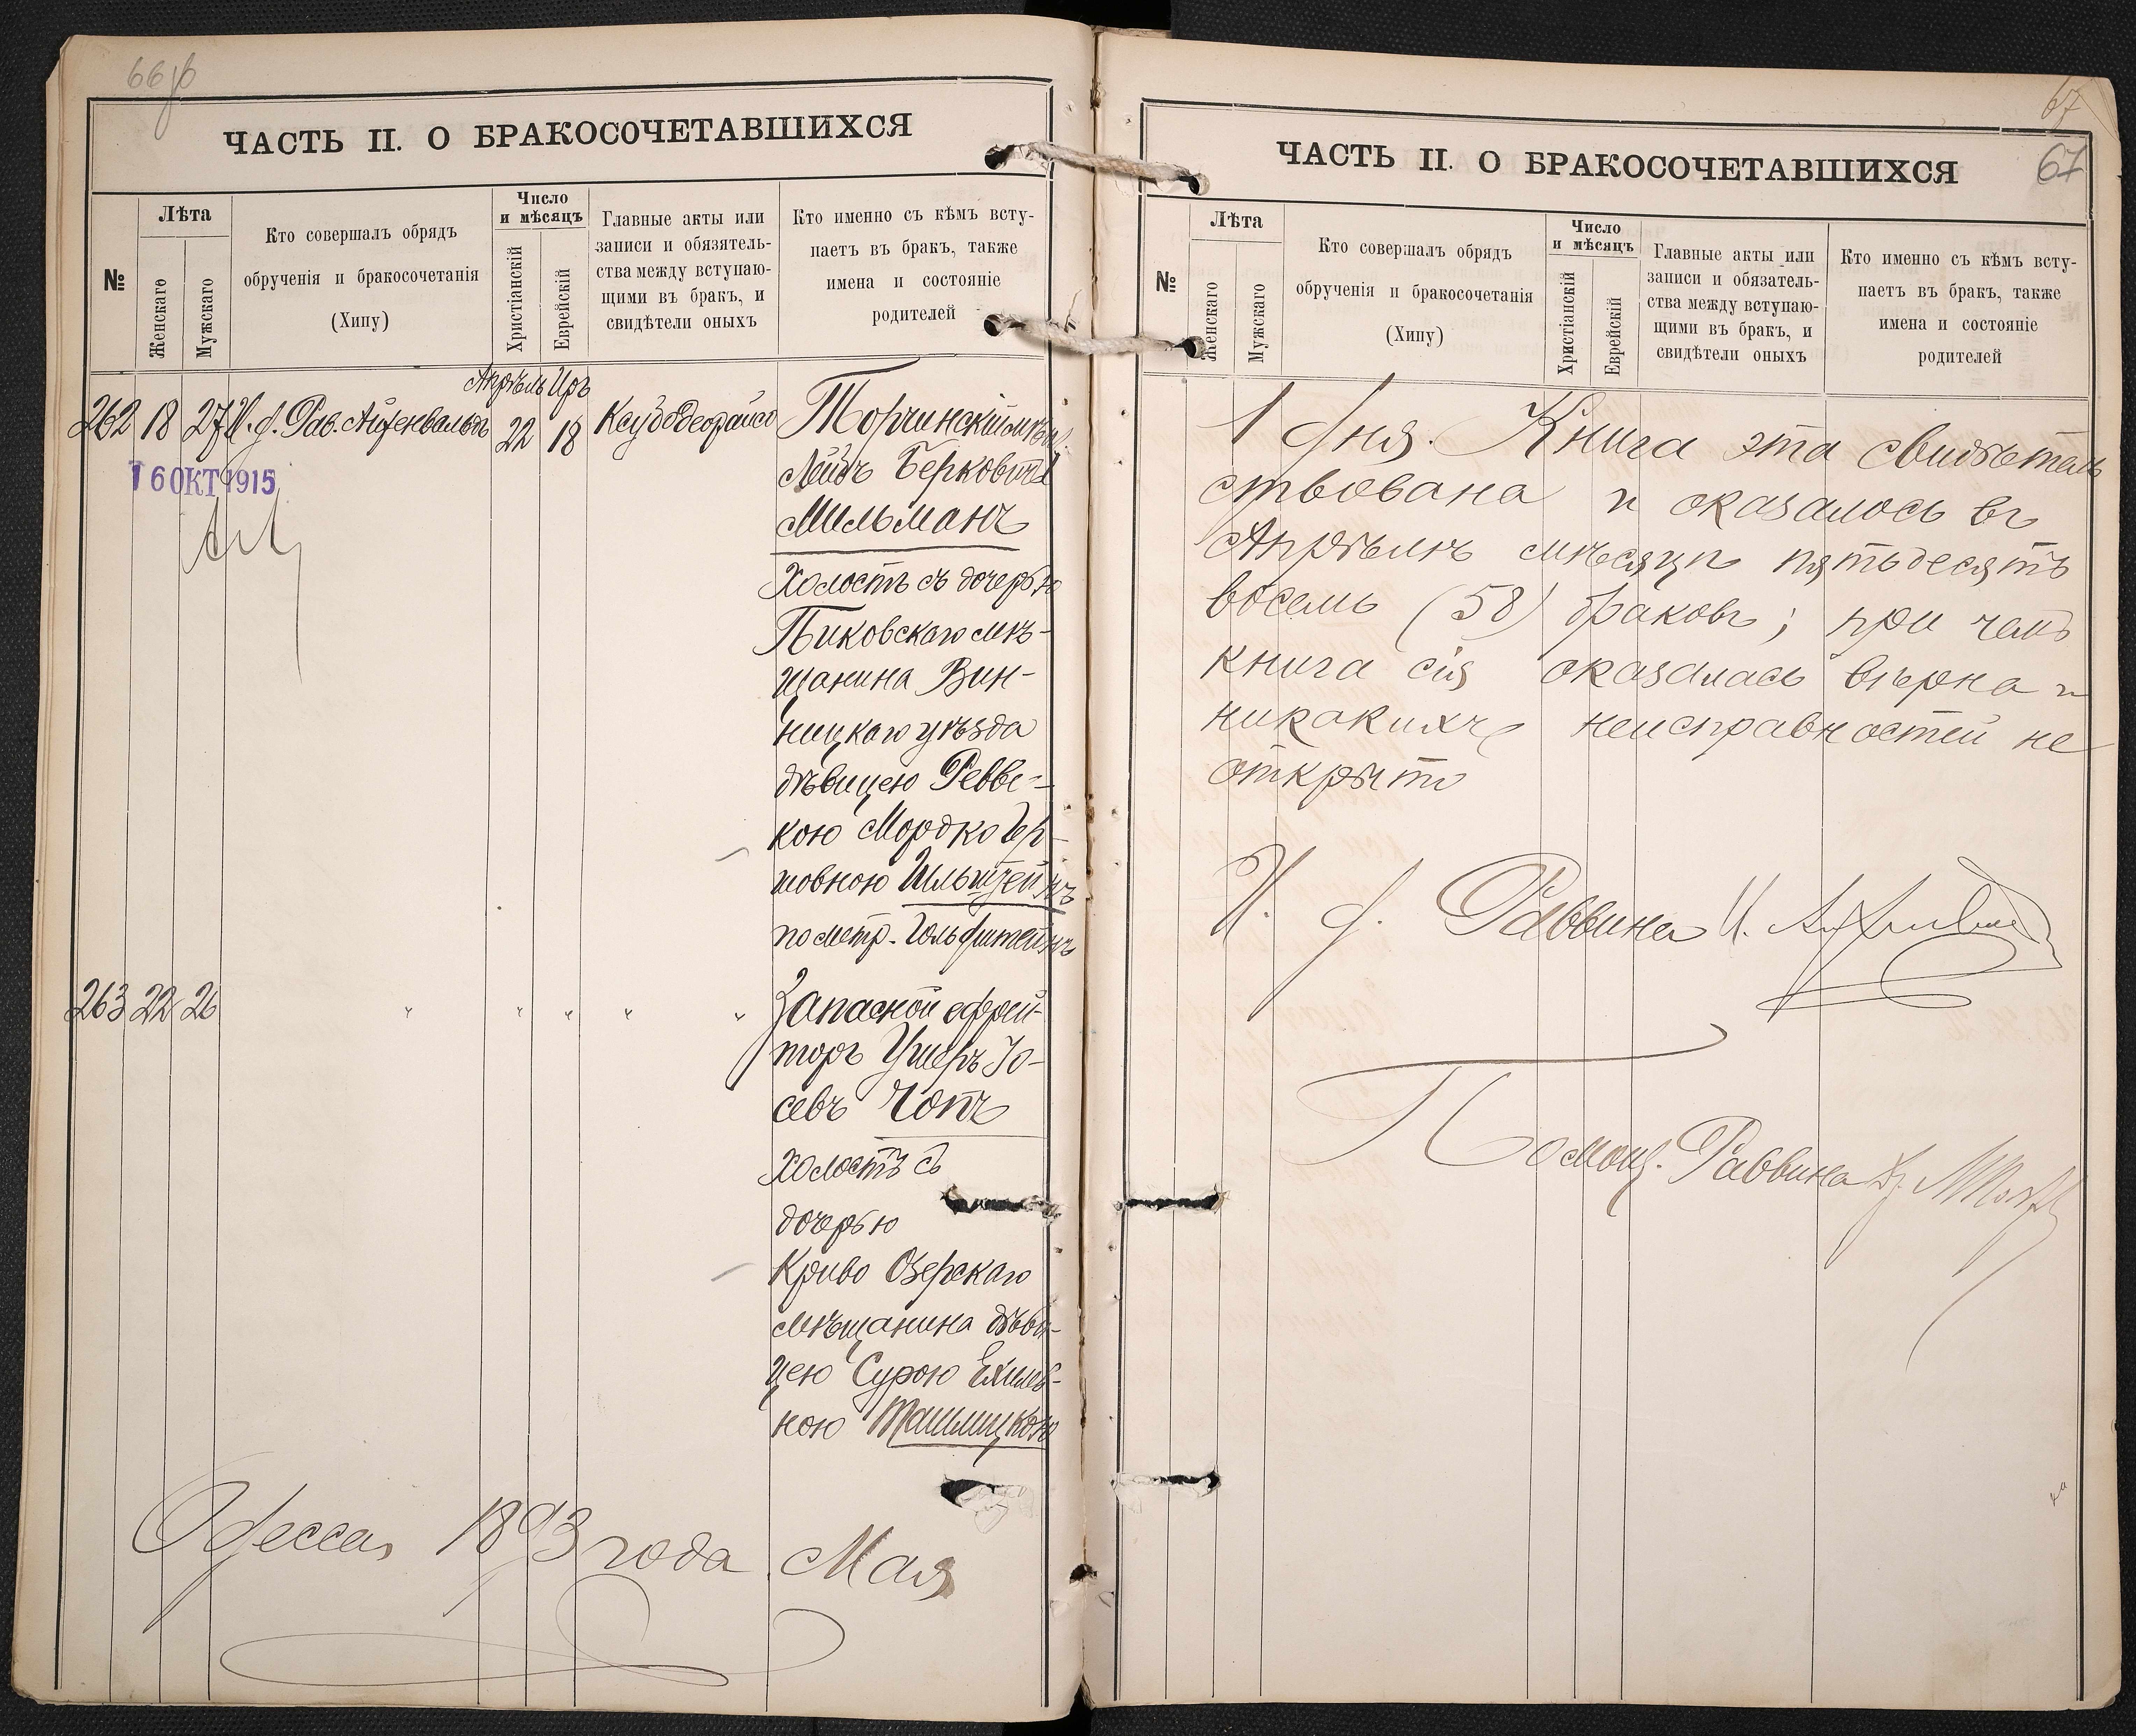 66 об
ЧАСТЬ II. О БРАКОСОЧЕТАВШИХСЯ
№
Лѣта
Женскаго
Мужскаго
Кто совершалъ обрядъ
обрученія и бракосочетанія
(Хипу)
Число
и мѣсяцъ
Христіанскій
Еврейскій
Главные акты или
записи и обязятель-
ства между вступаю-
щими въ бракъ, и
свидѣтели оныхъ
Кто именно съ кѣмъ всту-
паетъ въ бракъ, также
имена и состояніе
родителей
Апрѣль Iръ
262 18 27 И. д. Рав. Айзенвальдъ 22 18
Торчинскій мѣщ.
Лейбъ Берковичъ
Мильманъ
Холостъ съ дочерью
Пиковскаго мѣ-
щанина Вин-
ницкаго уѣзда
дѣвицею Ревве-
кою Мордко Гер-
шовною Ильштейнъ
по метр. Гольдштейнъ
16 ОКТ 1915
263 22 26 " " " " "
Запасной ефрей-
торъ Ушеръ Iо-
севъ Чопъ
Холостъ съ
дочерью
Криво Озерскаго
мѣщанина дѣви-
цею Сурою Ехилев-
ною Ташлицкою
Одесса 1893 года Мая
67
67
ЧАСТЬ II. О БРАКОСОЧЕТАВШИХСЯ
№
Лѣта
Женскаго
Мужскаго
Кто совершалъ обрядъ
обрученія и бракосочетанія
(Хипу)
Число
и мѣсяцъ
Христіанскій
Еврейскій
Главные акты или
записи и обязатель-
ства между вступаю-
щими въ бракъ, и
свидѣтели оныхъ
Кто именно съ кѣмъ всту-
паетъ въ бракъ, также
имена и состояніе
родителей
1 дня. Книга эта свидѣтель
ствована и оказалось въ
Апрѣлѣ мѣсяцѣ пятьдесятъ
восемь (58) браковъ; при чемъ
книга сія оказалась вѣрна и
никакихъ неисправностей не
открыто
И. д. Раввина И.
Помощ. Раввина